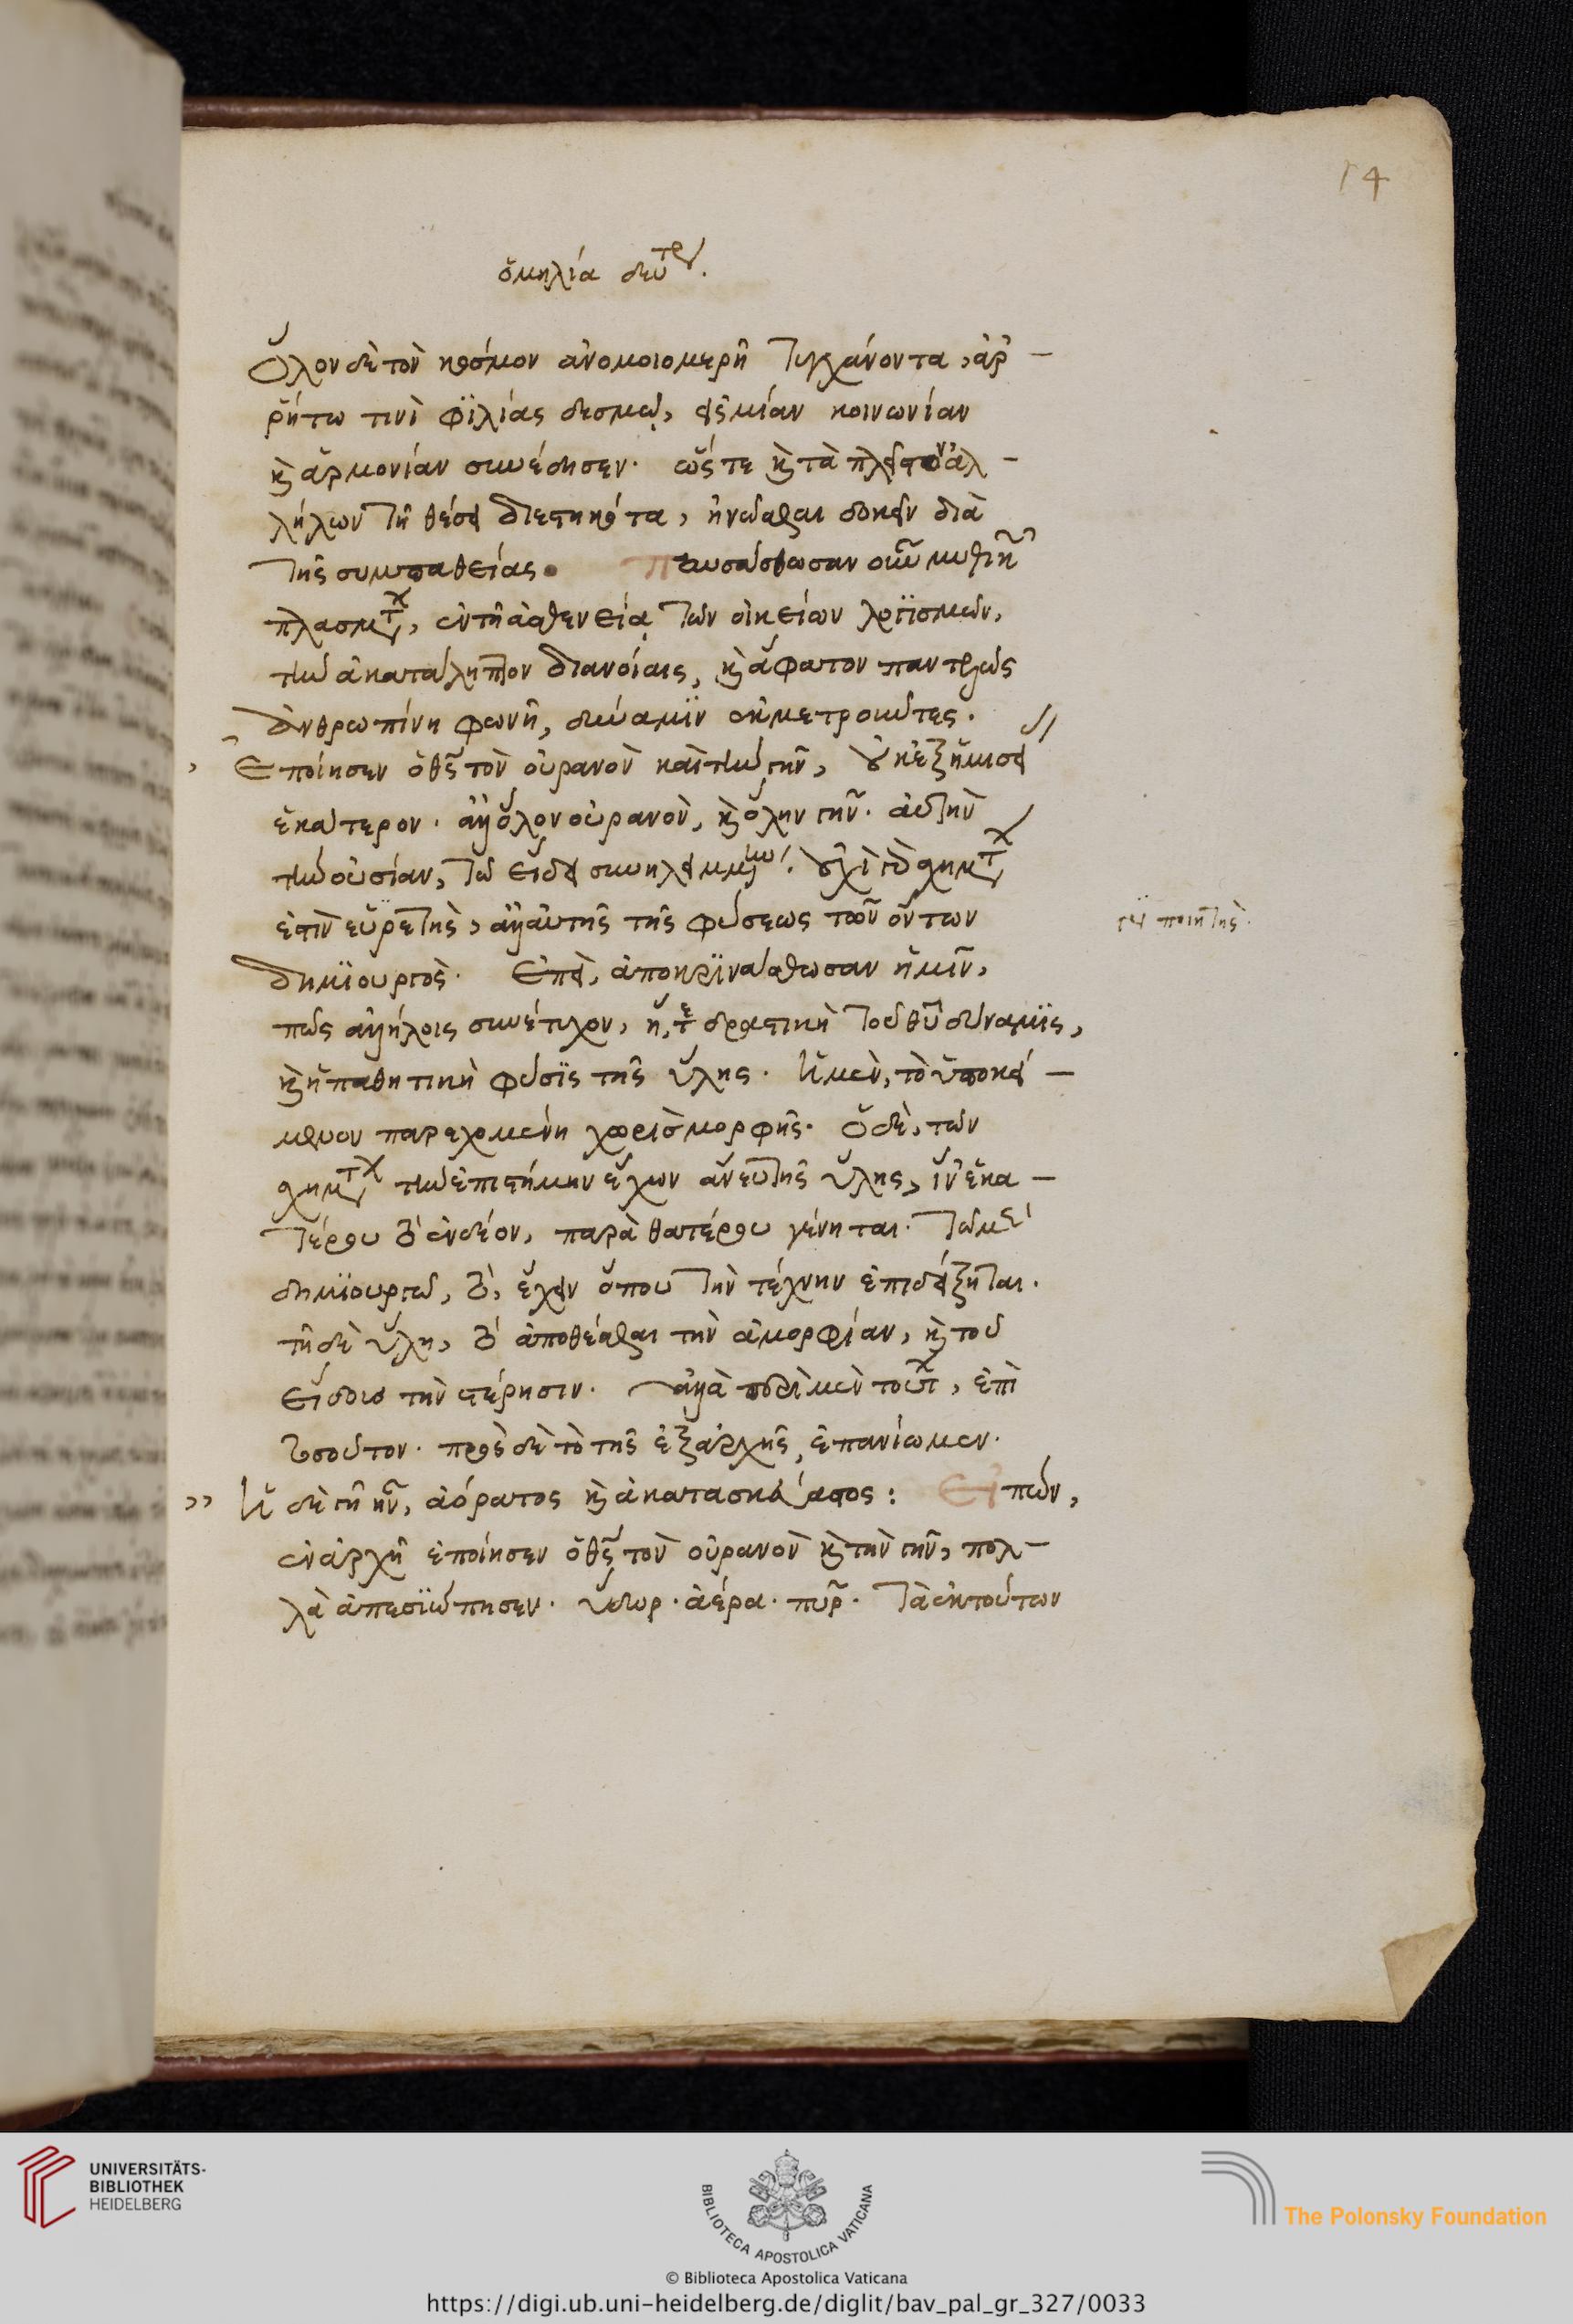 14
ὁμηλία δευτέρα.
Ὅλον δὲ τὸν κόσμον ἀνομοιομερῆ τυγχάνοντα, ἀρ-
ρήτω τινὶ φιλίας δεσμῷ, εἰς μίαν κοινωνίαν
καὶ ἁρμονίαν συνέδησεν. ὥστε καὶ τὰ πλεῖστον ἀλ-
λήλων τῇ θέσει διεστηκότα, ἡνῶσθαι δοκεῖν διὰ
τῆς συμπαθείας. Παυσάσθωσαν οὖν μυθικῶν
πλασμάτων, ἐν τῇ ἀσθενείᾳ τῶν οἰκείων λογισμῶν,
τὴν ἀκατάληπτον διανοίαις, καὶ ἄφατον παντελῶς
ἀνθρωπίνη φωνῇ, δύναμιν ἐκμετροῦντες.
Ἐποίησεν ὁ θεὸς τὸν οὐρανὸν καὶ τὴν γῆν, οὐκ ἐξ ἡμισεί
ἑκάτερον. ἀλλ' ὅλον οὐρανὸν, καὶ ὅλην γῆν. αὐτὴν
τὴν οὐσίαν, τῶ εἴδει συνειλημμένην. οὐχὶ γὰρ σχημάτων
ἐστὶν εὑρετὴς, ἀλλ' αὐτῆς τῆς φύσεως τῶν ὄντων
ποιητὴς.
δημιουργὸς. Ἐπεὶ, ἀποκρινάσθωσαν ἡμῖν,
πῶς ἀλλήλοις συνέτυχον, ἥ, τε δραστικὴ τοῦ θεοῦ δύναμις,
καὶ ἡ παθητικὴ φύσις τῆς ὕλης. Ἡ μὲν, τὸ ὑποκεί-
μενον παρεχομένη χωρὶς μορφῆς. ὁ δὲ, τῶν
σχημάτων τὴν ἐπιστήμην ἔχων ἄνευ τῆς ὕλης, ἵν' ἑκα-
τέρου τὸ ἐνδέον, παρὰ θατέρου γένηται. τῶ μὲν
δημιουργῶ, τὸ, ἔχειν ὅπου τὴν τέχνην ἐπιδείξηται.
τῇ δὲ ὕλη, τὸ ἀποθέσθαι τὴν ἀμορφίαν, καὶ τοῦ
εἴδους τὴν στέρησιν. ἀλλὰ περὶ μὲν τούτων, ἐπὶ
τοσοῦτον. πρὸς δὲ τὸ τῆς ἐξαρχῆς, ἐπανίωμεν.
Ἡ δὲ γῆ ἦν, ἀόρατος καὶ ἀκατασκεύαστος: Εἰπὼν,
ἐν ἀρχῇ ἐποίησεν ὁ θεὸς τὸν οὐρανὸν καὶ τὴν γῆν, πολ-
λὰ ἀπεσιώπησεν. ὕδωρ. ἀέρα. πῦρ. τὰ ἐκ τούτων
UNIVERSITÄTS-
BIBLIOTHEK
HEIDELBERG
BIBLIOTECA APOSTOLICA VATICANA
© Biblioteca Apostolica Vaticana
The Polonsky Foundation
https://digi.ub.uni-heidelberg.de/diglit/bav_pal_gr_327/0033